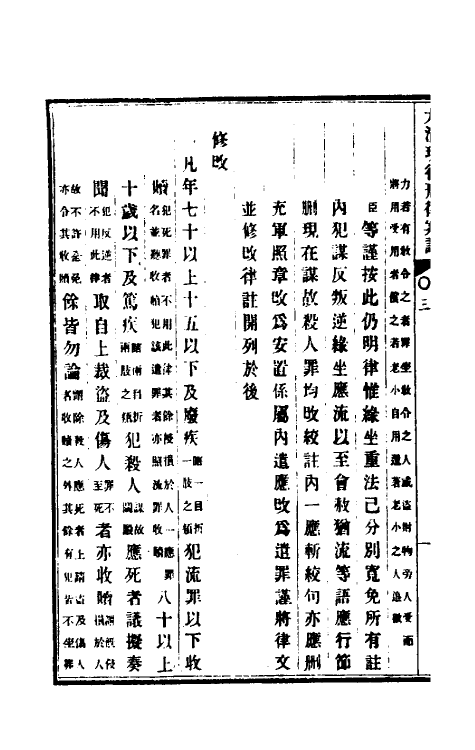 大清現行刑律案語
三
力若有教令之者罪坐教令之人或盜財物旁人受而
將用受用者償之若老小自用還著老小之人追徵
臣等謹按此仍明律惟緣坐重法已分別寬免所有註
內犯謀反叛逆緣坐應流以至會赦猶流等語應行節
刪現在謀故殺人罪均改絞註內一應斬絞句亦應刪
充軍照章改爲安置係屬內遣應改爲遣罪謹將律文
並修改律註開列於後
修改
凡年七十以上十五以下及廢疾瞎一目折一肢之類犯流罪以下收
贖犯死罪者不用此律其餘侵損於人一應罪名並聽收贖犯該遣罪者亦照流罪收贖八十以上
十歲以下及篤疾瞎兩目折兩肢之類犯殺人謀故鬬毆應死者議擬奏
聞犯反逆者不用此律取自上裁盜及傷人罪不至死者亦收贖謂既侵損於人
故不許全免亦令其收贖餘皆勿論謂除殺人應死者上請盜及傷人者收贖之外其餘有犯皆不坐罪